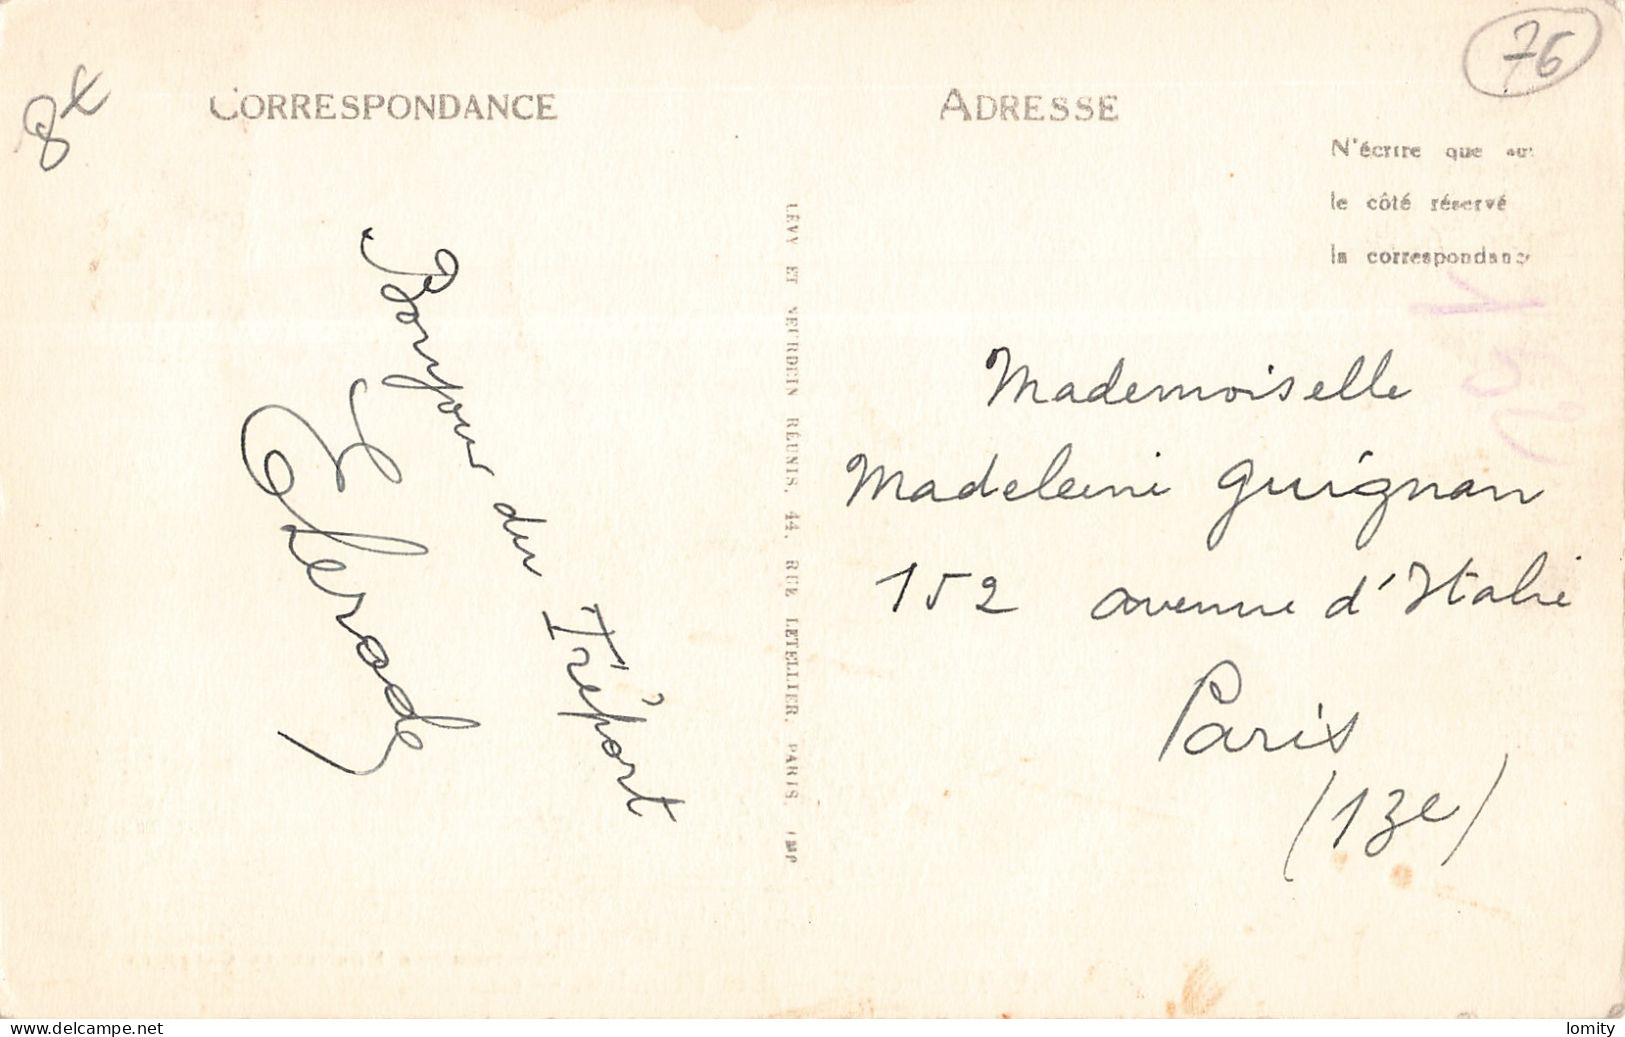 76
8x
CORRESPONDANCE
ADRESSE
N'écrire que sur
le côté réservé
la correspondance
Bonjour du Tréport
LÉVY ET NEURDEIN RÉUNIS, 44, RUE LETELLIER, PARIS, IMP
Mademoiselle
Madeleine Guignan
152 avenue d'Italie
Paris
(13e)
www.delcampe.net
lomity